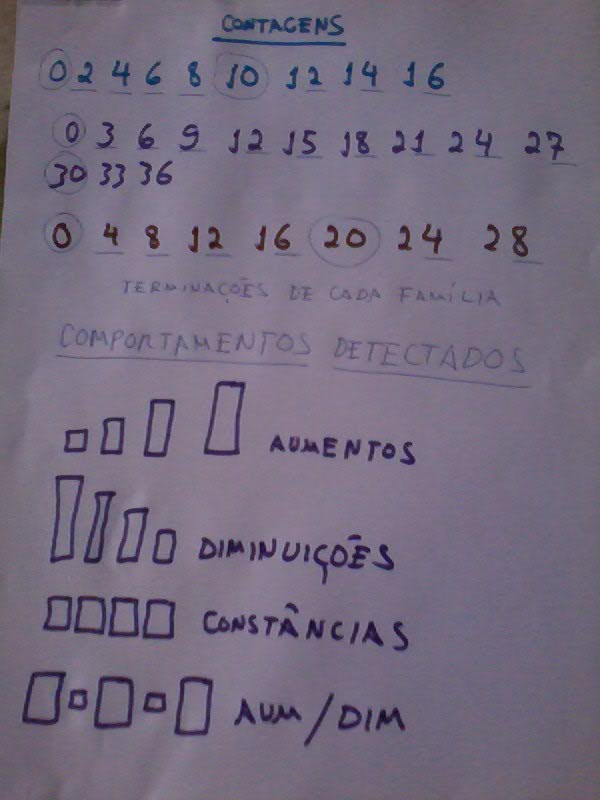 CONTAGENS
0 2 4 6 8 10 12 14 16
0 3 6 9 12 15 18 21 24 27
30 33 36
0 4 8 12 16 20 24 28
TERMINAÇÕES DE CADA FAMÍLIA
COMPORTAMENTOS DETECTADOS
AUMENTOS
DIMINUIÇÕES
CONSTÂNCIAS
AUM/DIM